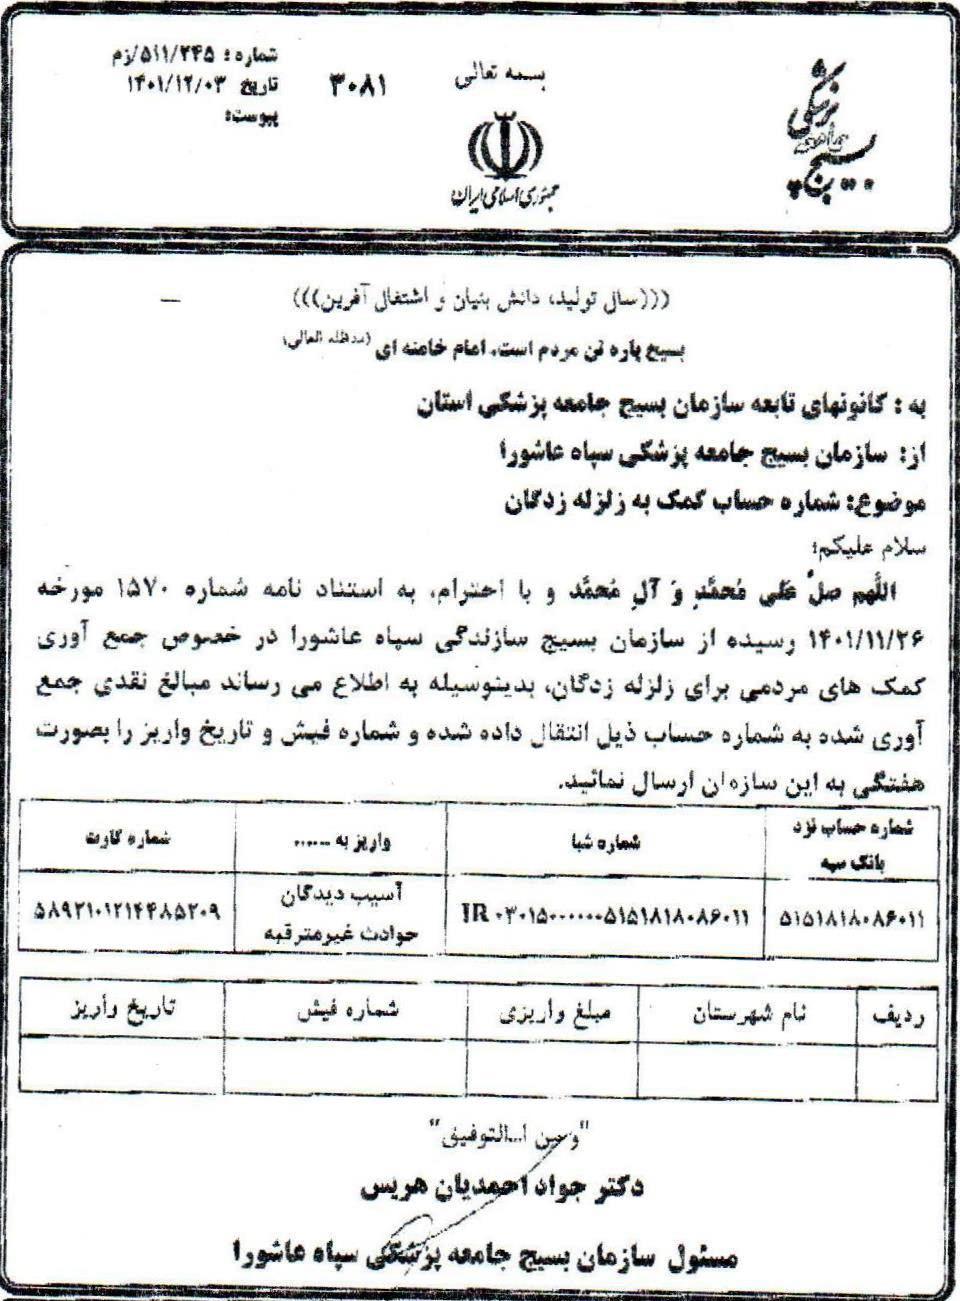 بسمه تعالی
جمهوری اسلامی ایران
بسیج
جامعه
پزشکی
۳۰۸۱
شماره: ۵۱۱/۲۴۵/زم
تاریخ ۱۴۰۱/۱۲/۰۳
پیوست:
(((سال تولید، دانش بنیان و اشتغال آفرین)))
بسیج پاره تن مردم است. امام خامنه ای (مدظله العالی)
به : کانونهای تابعه سازمان بسیج جامعه پزشکی استان
از: سازمان بسیج جامعه پزشکی سپاه عاشورا
موضوع: شماره حساب کمک به زلزله زدگان
سلام علیکم؛
اللَّهم صلِّ عَلی مُحمَّد وَ آلِ مُحمَّد و با احترام، به استناد نامه شماره ۱۵۷۰ مورخه
۱۴۰۱/۱۱/۲۶ رسیده از سازمان بسیج سازندگی سپاه عاشورا در خصوص جمع آوری
کمک های مردمی برای زلزله زدگان، بدینوسیله به اطلاع می رساند مبالغ نقدی جمع
آوری شده به شماره حساب ذیل انتقال داده شده و شماره فیش و تاریخ واریز را بصورت
هفتگی به این سازمان ارسال نمائید.
شماره حساب نزد بانک سپه	شماره شبا	واریز به ......	شماره کارت
۵۱۵۱۸۱۸۰۸۶۰۱۱	IR ۰۳۰۱۵۰۰۰۰۰۰۵۱۵۱۸۱۸۰۸۶۰۱۱	آسیب دیدگان حوادث غیرمترقبه	۵۸۹۲۱۰۱۲۱۴۴۸۵۲۰۹
ردیف	نام شهرستان	مبلغ واریزی	شماره فیش	تاریخ واریز
"و من ا... التوفیق"
دکتر جواد احمدیان هریس
مسئول سازمان بسیج جامعه پزشکی سپاه عاشورا